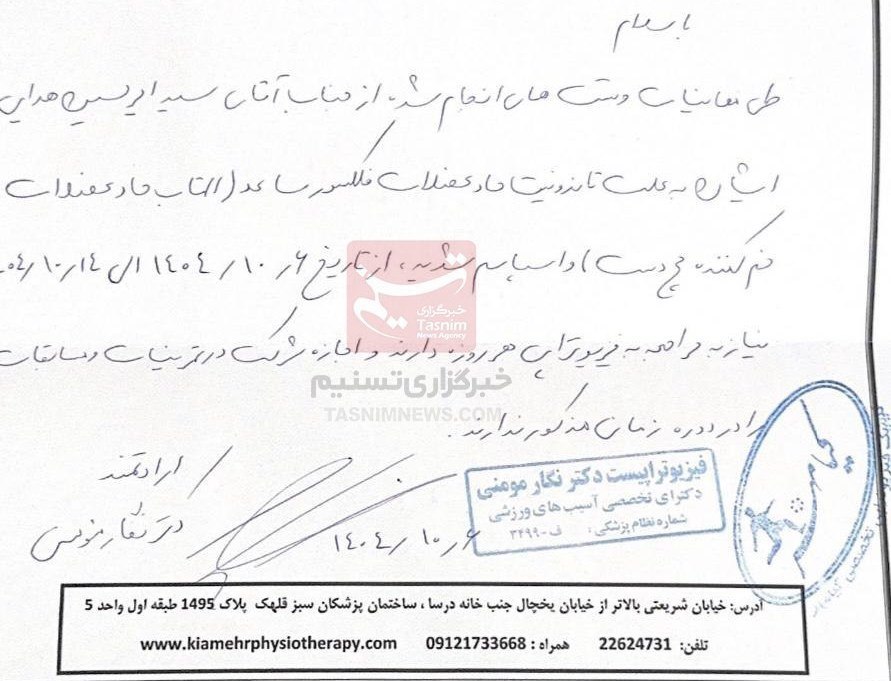 با سلام
طی معاینات و تست های انجام شده از جناب آقای سید ابوالحسن هدایی
ایشان به علت تاندونیت حاد عضلات فلکسور ساعد (التهاب حاد عضلات
خم کننده مچ دست) و اسپاسم شدید، از تاریخ ۱۴۰۴/۱۰/۶ الی ۱۴۰۴/۱۰/۱۴
نیاز به مراجعه به فیزیوتراپی هر روزه دارند و اجازه شرکت در تمرینات و مسابقات
را در دوره زمان مذکور ندارند.
خبرگزاری
Tasnim
News Agency
خبرگزاری تسنیم
TASNIMNEWS.COM
ارادتمند
دکتر نگار مومنی
۱۴۰۴/۱۰/۶
فیزیوتراپیست دکتر نگار مومنی
دکترای تخصصی آسیب های ورزشی
شماره نظام پزشکی: ف-۳۴۹۹
آدرس: خیابان شریعتی بالاتر از خیابان یخچال جنب خانه درسا ، ساختمان پزشکان سبز قلهک پلاک 1495 طبقه اول واحد 5
تلفن: 22624731 همراه : 09121733668 www.kiamehrphysiotherapy.com